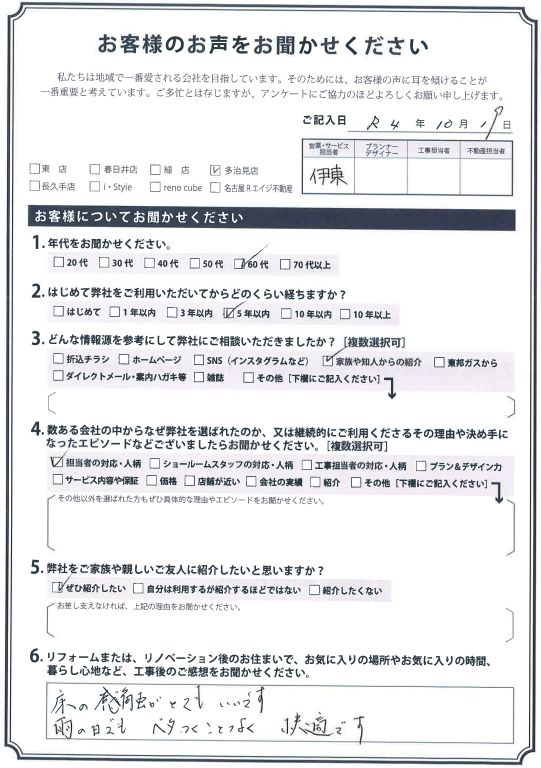 お客様のお声をお聞かせください
私たちは地域で一番愛される会社を目指しています。そのためには、お客様の声に耳を傾けることが
一番重要と考えています。ご多忙とは存じますが、アンケートにご協力のほどよろしくお願い申し上げます。
ご記入日 R4年10月19日
営業・サービス担当者 プランナーデザイナー 工事担当者 不動産担当者
伊東
東 店 春日井店 緑 店 多治見店
長久手店 i・Style reno cube 名古屋Rエイジ不動産
お客様についてお聞かせください
1. 年代をお聞かせください。
20代 30代 40代 50代 60代 70代以上
2. はじめて弊社をご利用いただいてからどのくらい経ちますか？
はじめて 1年以内 3年以内 5年以内 10年以内 10年以上
3. どんな情報源を参考にして弊社にご相談いただきましたか？［複数選択可］
折込チラシ ホームページ SNS（インスタグラムなど） 家族や知人からの紹介 東邦ガスから
ダイレクトメール・案内ハガキ等 雑誌 その他［下欄にご記入ください］
4. 数ある会社の中からなぜ弊社を選ばれたのか、又は継続的にご利用くださるその理由や決め手に
なったエピソードなどございましたらお聞かせください。［複数選択可］
担当者の対応・人柄 ショールームスタッフの対応・人柄 工事担当者の対応・人柄 プラン＆デザイン力
サービス内容や保証 価格 店舗が近い 会社の実績 紹介 その他［下欄にご記入ください］
その他以外を選ばれた方もぜひ具体的な理由やエピソードをお聞かせください。
5. 弊社をご家族や親しいご友人に紹介したいと思いますか？
ぜひ紹介したい 自分は利用するが紹介するほどではない 紹介したくない
お差し支えなければ、上記の理由をお聞かせください。
6. リフォームまたは、リノベーション後のお住まいで、お気に入りの場所やお気に入りの時間、
暮らし心地など、工事後のご感想をお聞かせください。
床の感触がとてもいいです
雨の日でも ベタつくことなく 快適です